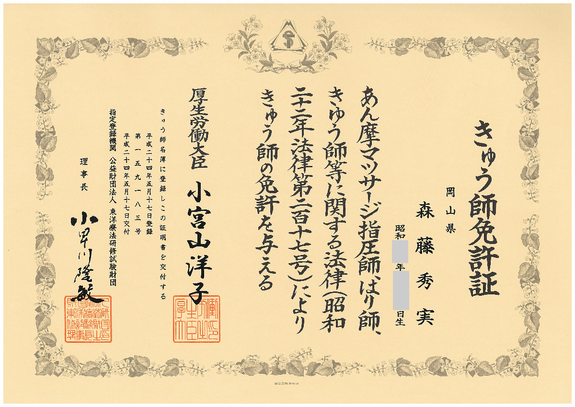 きゅう師免許証
岡山県
森藤秀実
昭和 年 日生
あん摩マツサージ指圧師、はり師、
きゅう師等に関する法律（昭和
二十二年法律第二百十七号）により
きゅう師の免許を与える
厚生労働大臣 小宮山洋子
きゅう師名簿に登録しこの証明書を交付する
平成二十四年五月十七日登録
第一五九一八三号
平成二十四年五月十七日交付
指定登録機関 公益財団法人 東洋療法研修試験財団
理事長 小早川隆敏